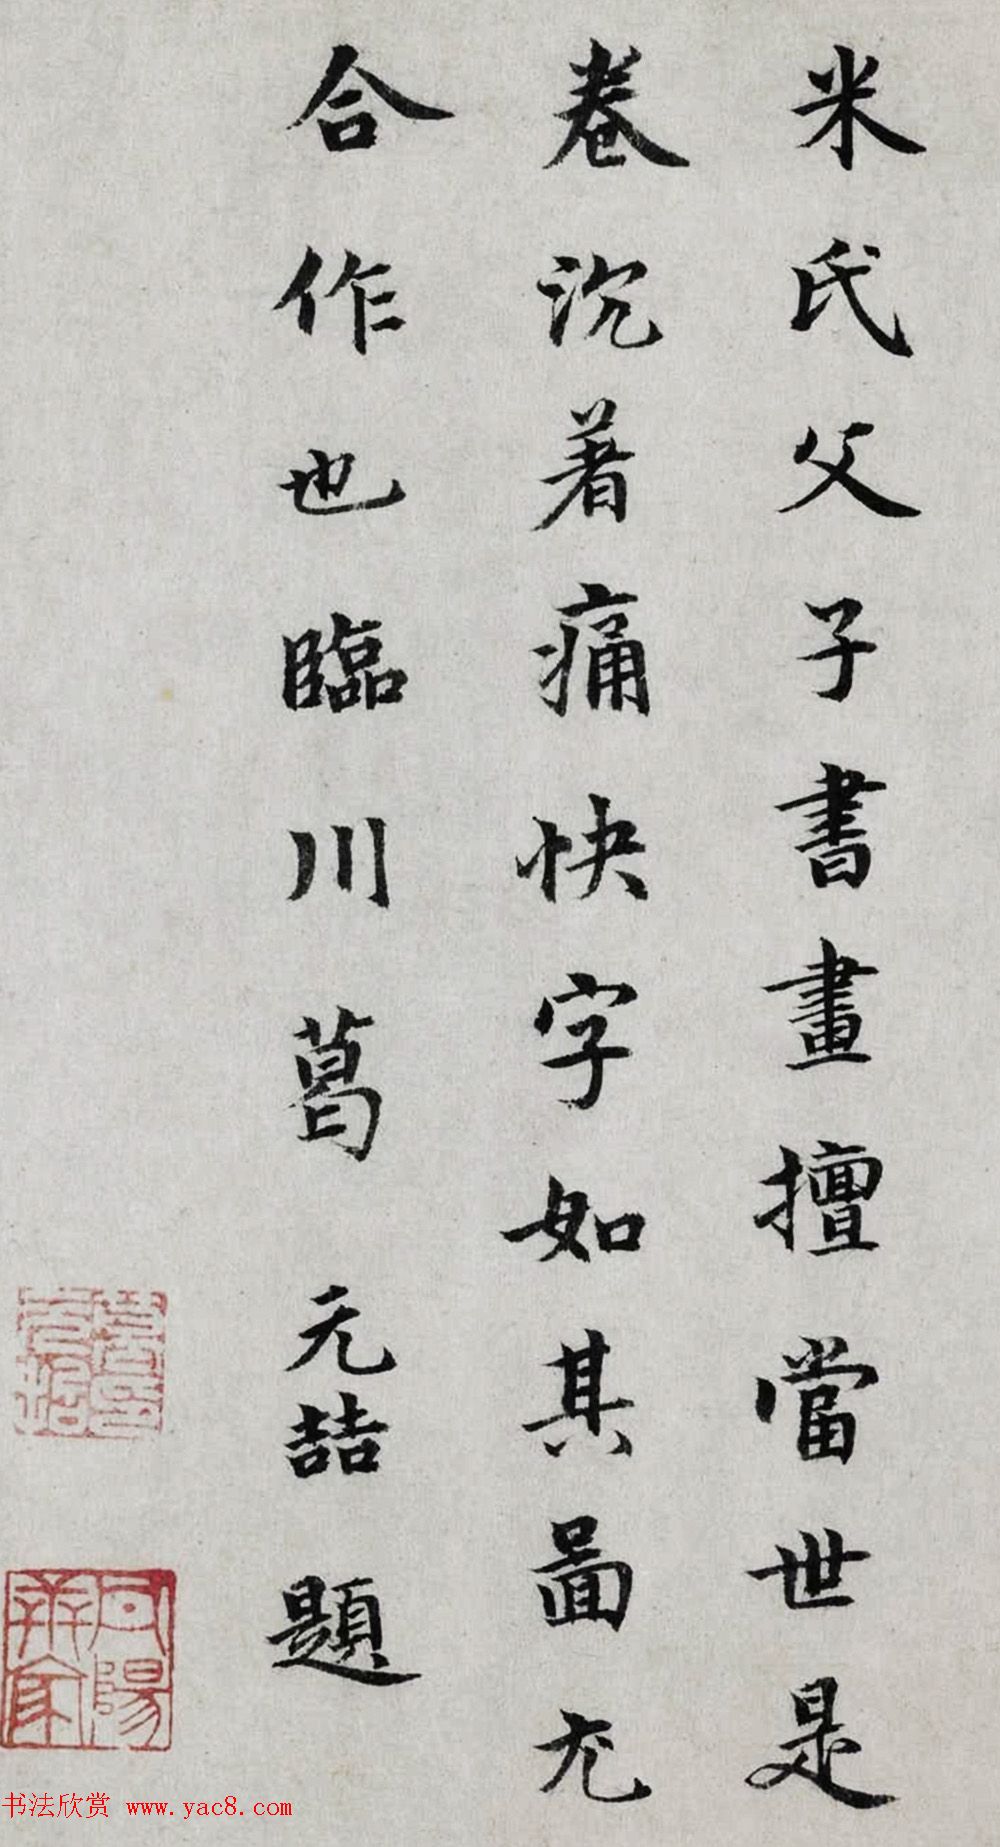 米氏父子書畫擅當世是
卷沉著痛快字如其啚尤
合作也臨川葛元喆題
书法欣赏 www.yac8.com